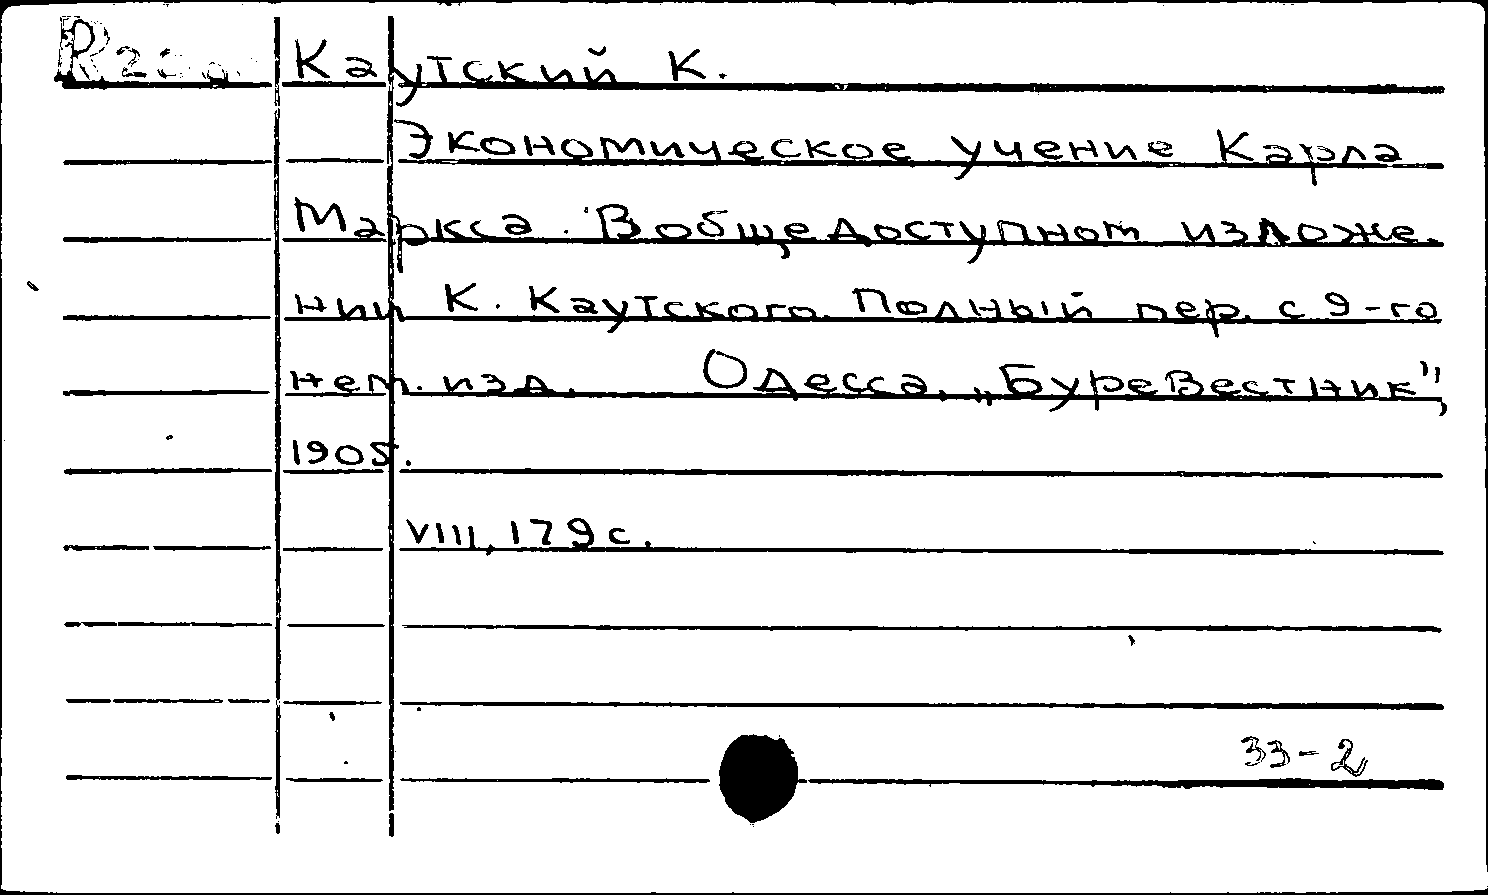 Каутский К.
Экономическое учение Карла
Маркса. В общедоступном изложе-
нии К. Каутского. Полный пер. с 9-го
нем. изд. Одесса, „Буревестник",
1905.
VIII, 179 с.
33-2